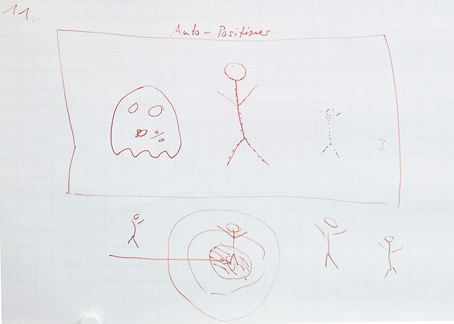 11.
Auto-Positions
80%